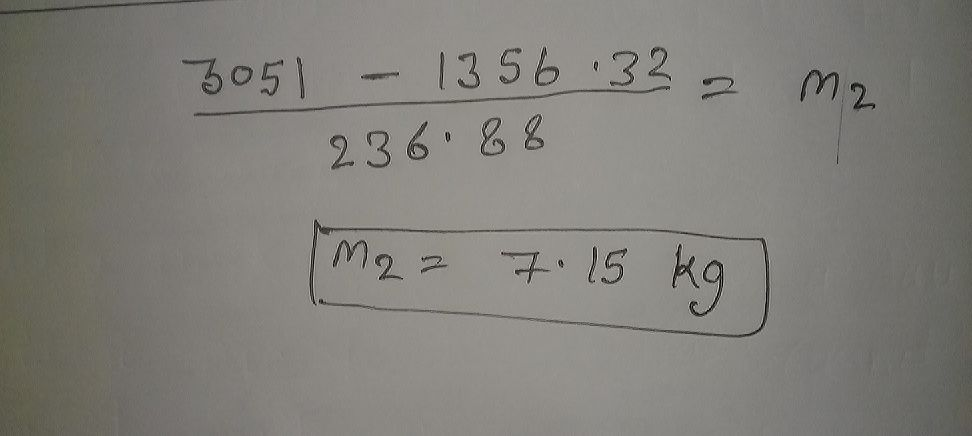 3051 - 1356.32 = m2
236.88
m2 = 7.15 kg